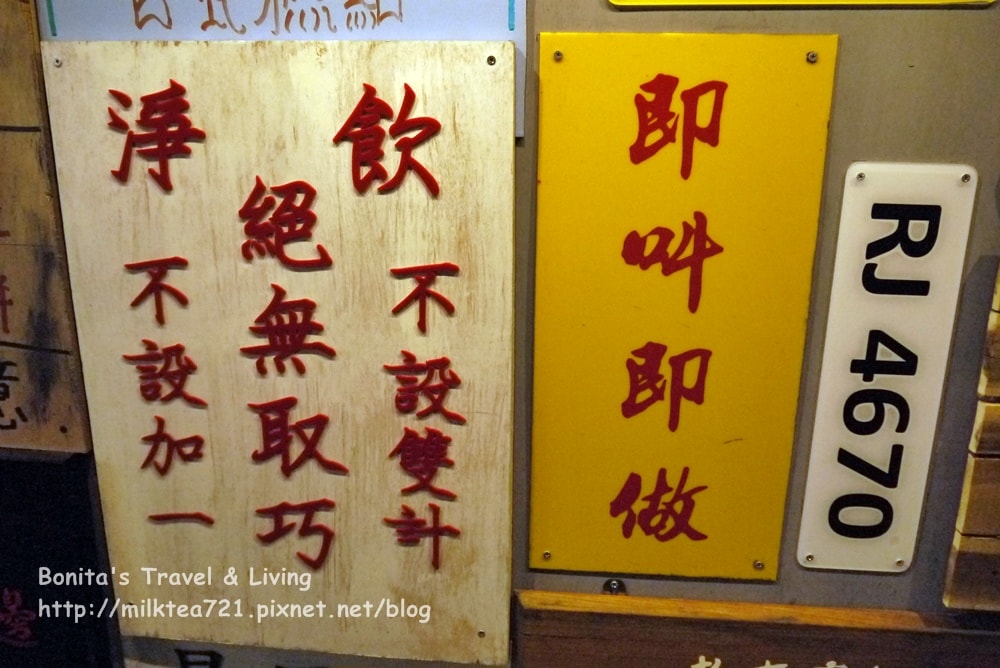 飲 不設雙計
絕無取巧
淨 不設加一
即叫即做
RJ 4670
Bonita's Travel & Living
http://milktea721.pixnet.net/blog